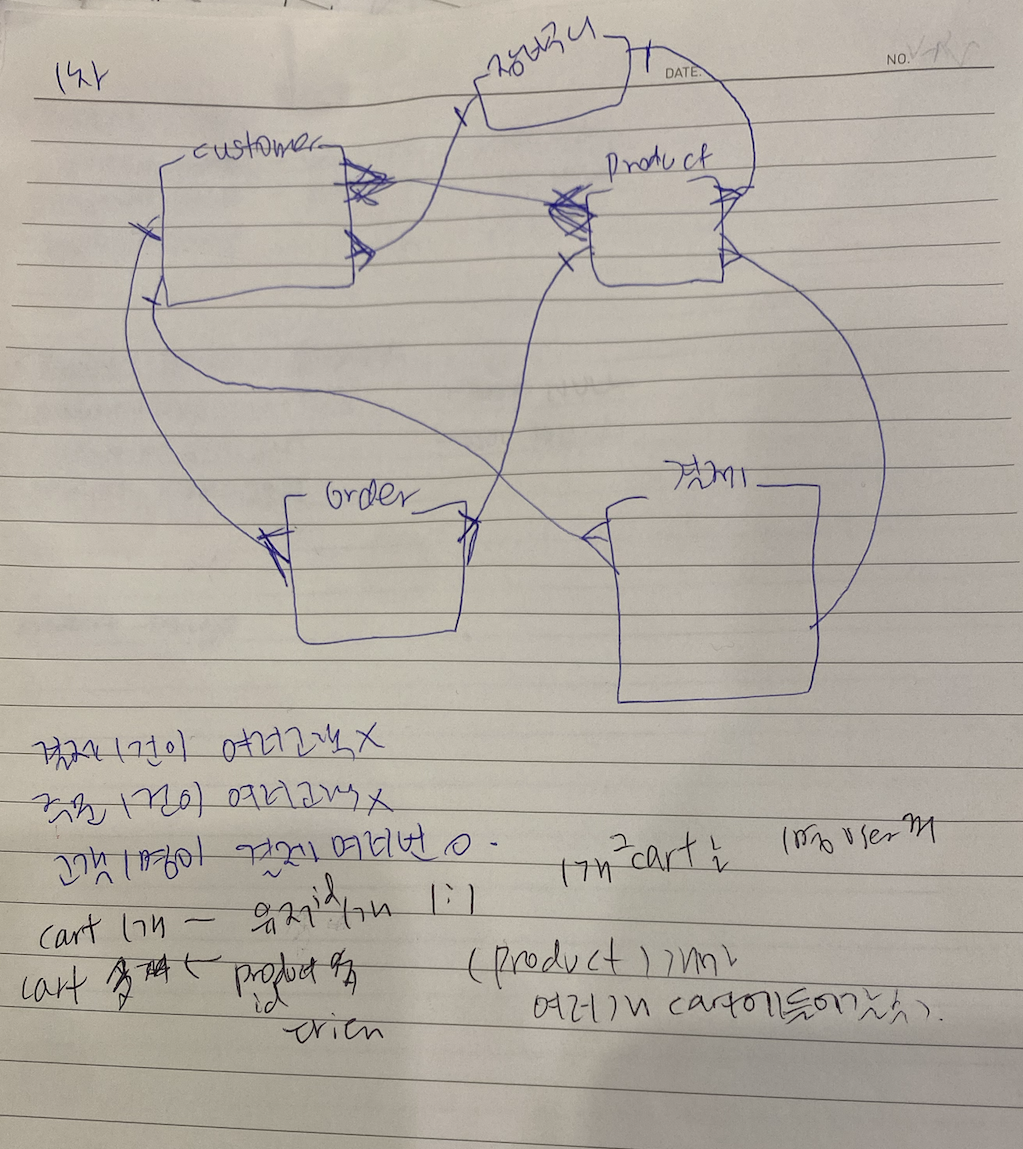 1차
장바구니
NO.
DATE.
customer
product
order
결제
결제 1건이 여러고객 X
주문 1건이 여러고객 X
고객 1명이 결제 여러번 O.
1개 cart는 1명 user
cart 1개 - 유저id 1개 1:1
cart ← product
id
(product) 1개가
여러개 cart에 들어갈 수